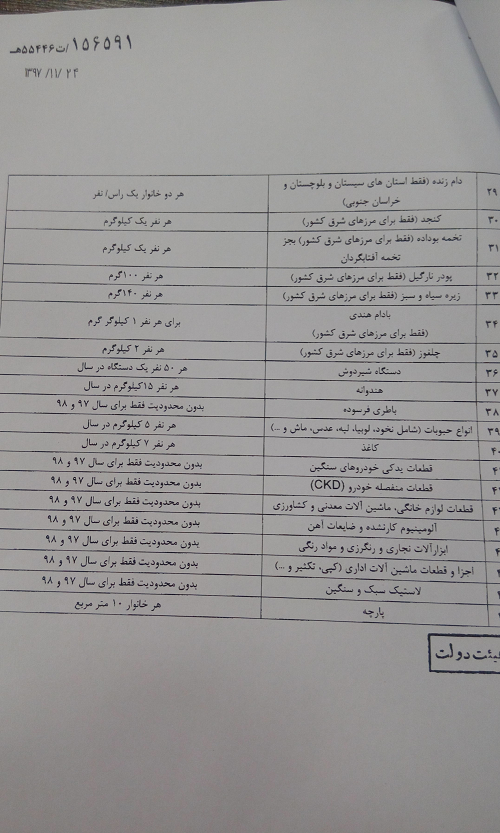 ۱۵۶۵۹۱/ت۵۵۴۴۶هـ
۱۳۹۷/۱۱/۲۴
۲۹ دام زنده (فقط استان های سیستان و بلوچستان و هر دو خانوار یک راس/ نفر
خراسان جنوبی)
۳۰ کنجد (فقط برای مرزهای شرق کشور) هر نفر یک کیلوگرم
۳۱ تخمه بوداده (فقط برای مرزهای شرق کشور) بجز هر نفر یک کیلوگرم
تخمه آفتابگردان
۳۲ پودر نارگیل (فقط برای مرزهای شرق کشور) هر نفر ۱۰۰گرم
۳۳ زیره سیاه و سبز (فقط برای مرزهای شرق کشور) هر نفر ۱۴۰گرم
۳۴ بادام هندی برای هر نفر ۱ کیلوگر گرم
(فقط برای مرزهای شرق کشور)
۳۵ چلغوز (فقط برای مرزهای شرق کشور) هر نفر ۲ کیلوگرم
۳۶ دستگاه شیردوش هر ۵۰ نفر یک دستگاه در سال
۳۷ هندوانه هر نفر ۱۵کیلوگرم در سال
۳۸ باطری فرسوده بدون محدودیت فقط برای سال ۹۷ و ۹۸
۳۹ انواع حبوبات (شامل نخود، لوبیا، لپه، عدس، ماش و ...) هر نفر ۵ کیلوگرم در سال
کاغذ هر نفر ۷ کیلوگرم در سال
قطعات یدکی خودروهای سنگین بدون محدودیت فقط برای سال ۹۷ و ۹۸
قطعات منفصله خودرو (CKD) بدون محدودیت فقط برای سال ۹۷ و ۹۸
قطعات لوازم خانگی، ماشین آلات معدنی و کشاورزی بدون محدودیت فقط برای سال ۹۷ و ۹۸
آلومینیوم کارنشده و ضایعات آهن بدون محدودیت فقط برای سال ۹۷ و ۹۸
ابزارآلات نجاری و رنگرزی و مواد رنگی بدون محدودیت فقط برای سال ۹۷ و ۹۸
اجزا و قطعات ماشین آلات اداری (کپی، تکثیر و ...) بدون محدودیت فقط برای سال ۹۷ و ۹۸
لاستیک سبک و سنگین بدون محدودیت فقط برای سال ۹۷ و ۹۸
پارچه هر خانوار ۱۰ متر مربع
هیئت دولت